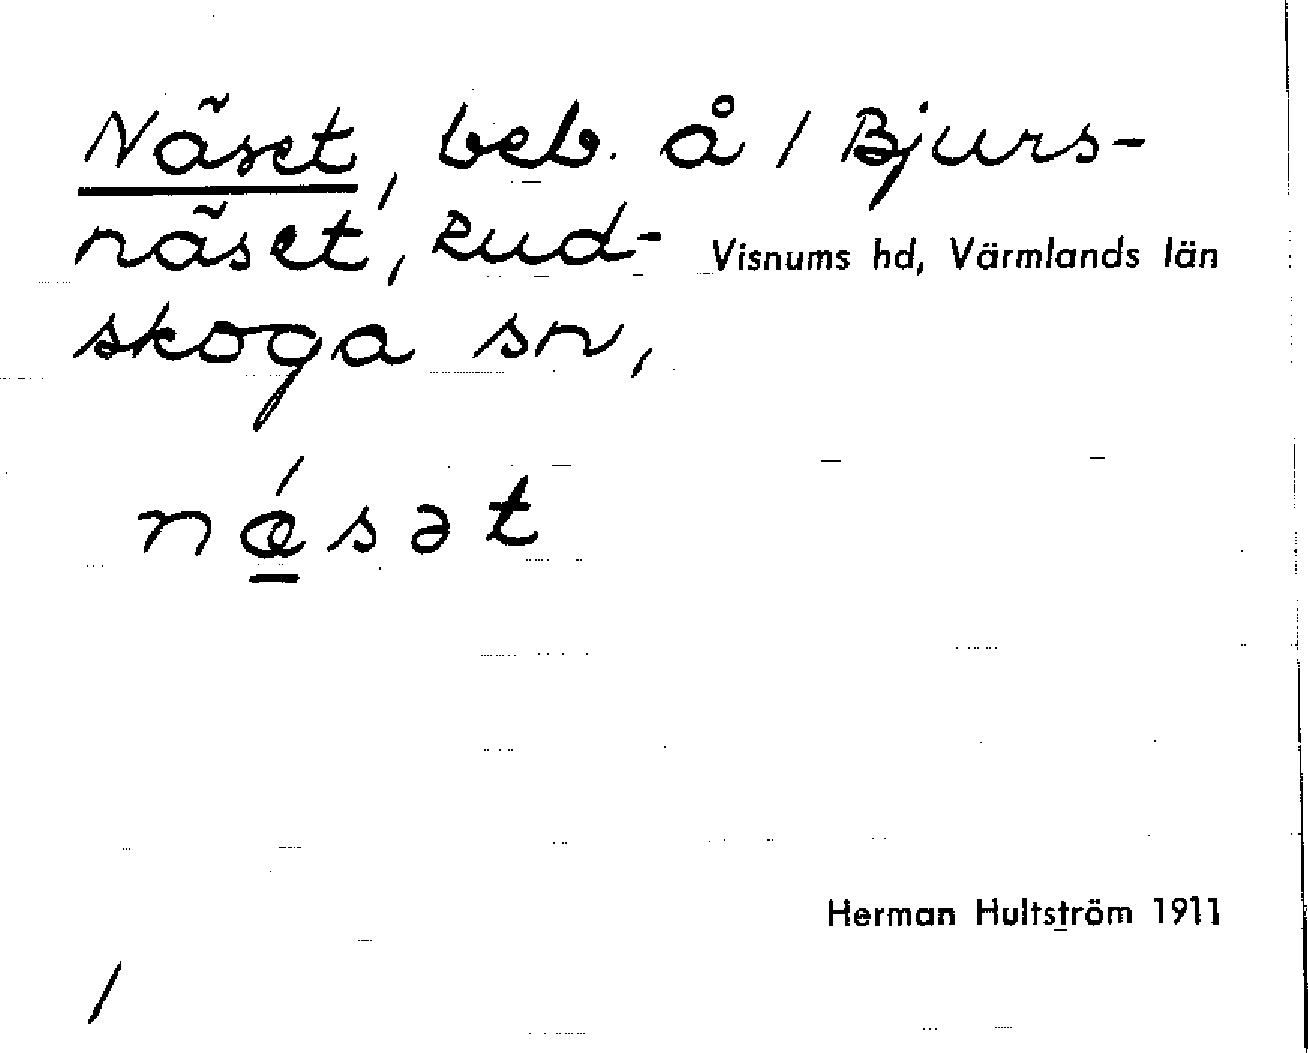 Näset, beb. å / Bjurs-
näset, Rud-
Visnums hd, Värmlands län
skoga sn,
nǽ̱sət
Herman Hultström 1911
/